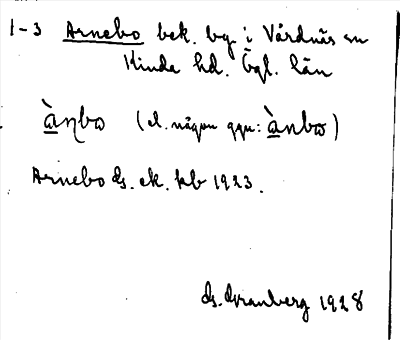 1-3 Arnebo bek. bg. i Vårdnäs sn
Kinda hd. Ögl. län
ànbω (el. någon ggn: ànbω)
Arnebo ds. ek. kb 1923.
ds. Granberg 1928